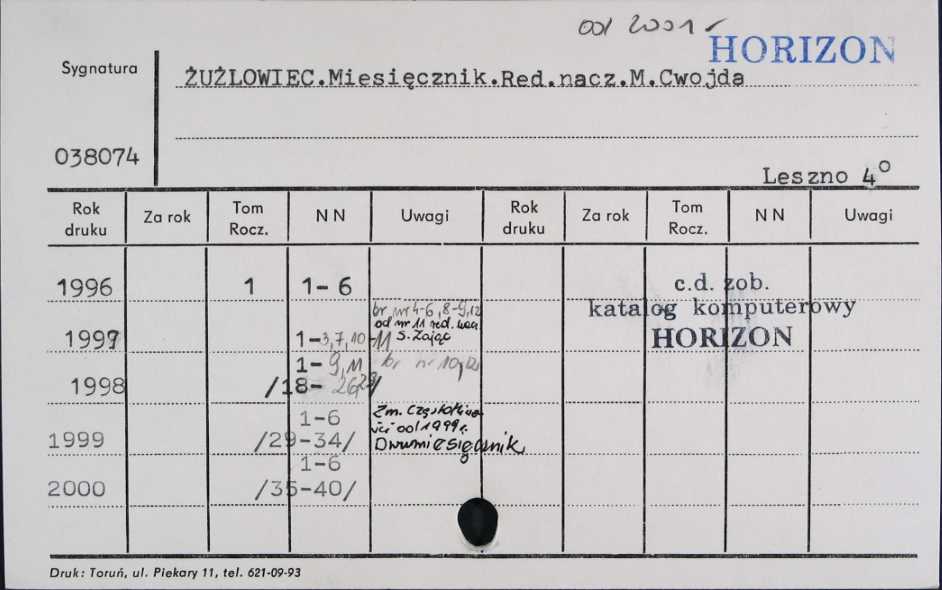 od 2001 r
HORIZON
Sygnatura
ŻUŻLOWIEC.Miesięcznik.Red.nacz.M.Cwojda
038074
Leszno 4°
Rok druku Za rok Tom Rocz. NN Uwagi Rok druku Za rok Tom Rocz. NN Uwagi
1996 1 1-6
c.d. zob.
katalog komputerowy
HORIZON
br nr 4-6, 8-9, 12
od nr 11 red. nacz
S. Zając
1997 1-3,7,10-11
1-9,11 br nr 10,12
1998 /18-26,28/
1-6 Zm. Częstotliwo
ści od 1999 r.
1999 /29-34/ Dwumiesięcznik
1-6
2000 /35-40/
Druk: Toruń, ul. Piekary 11, tel. 621-09-93